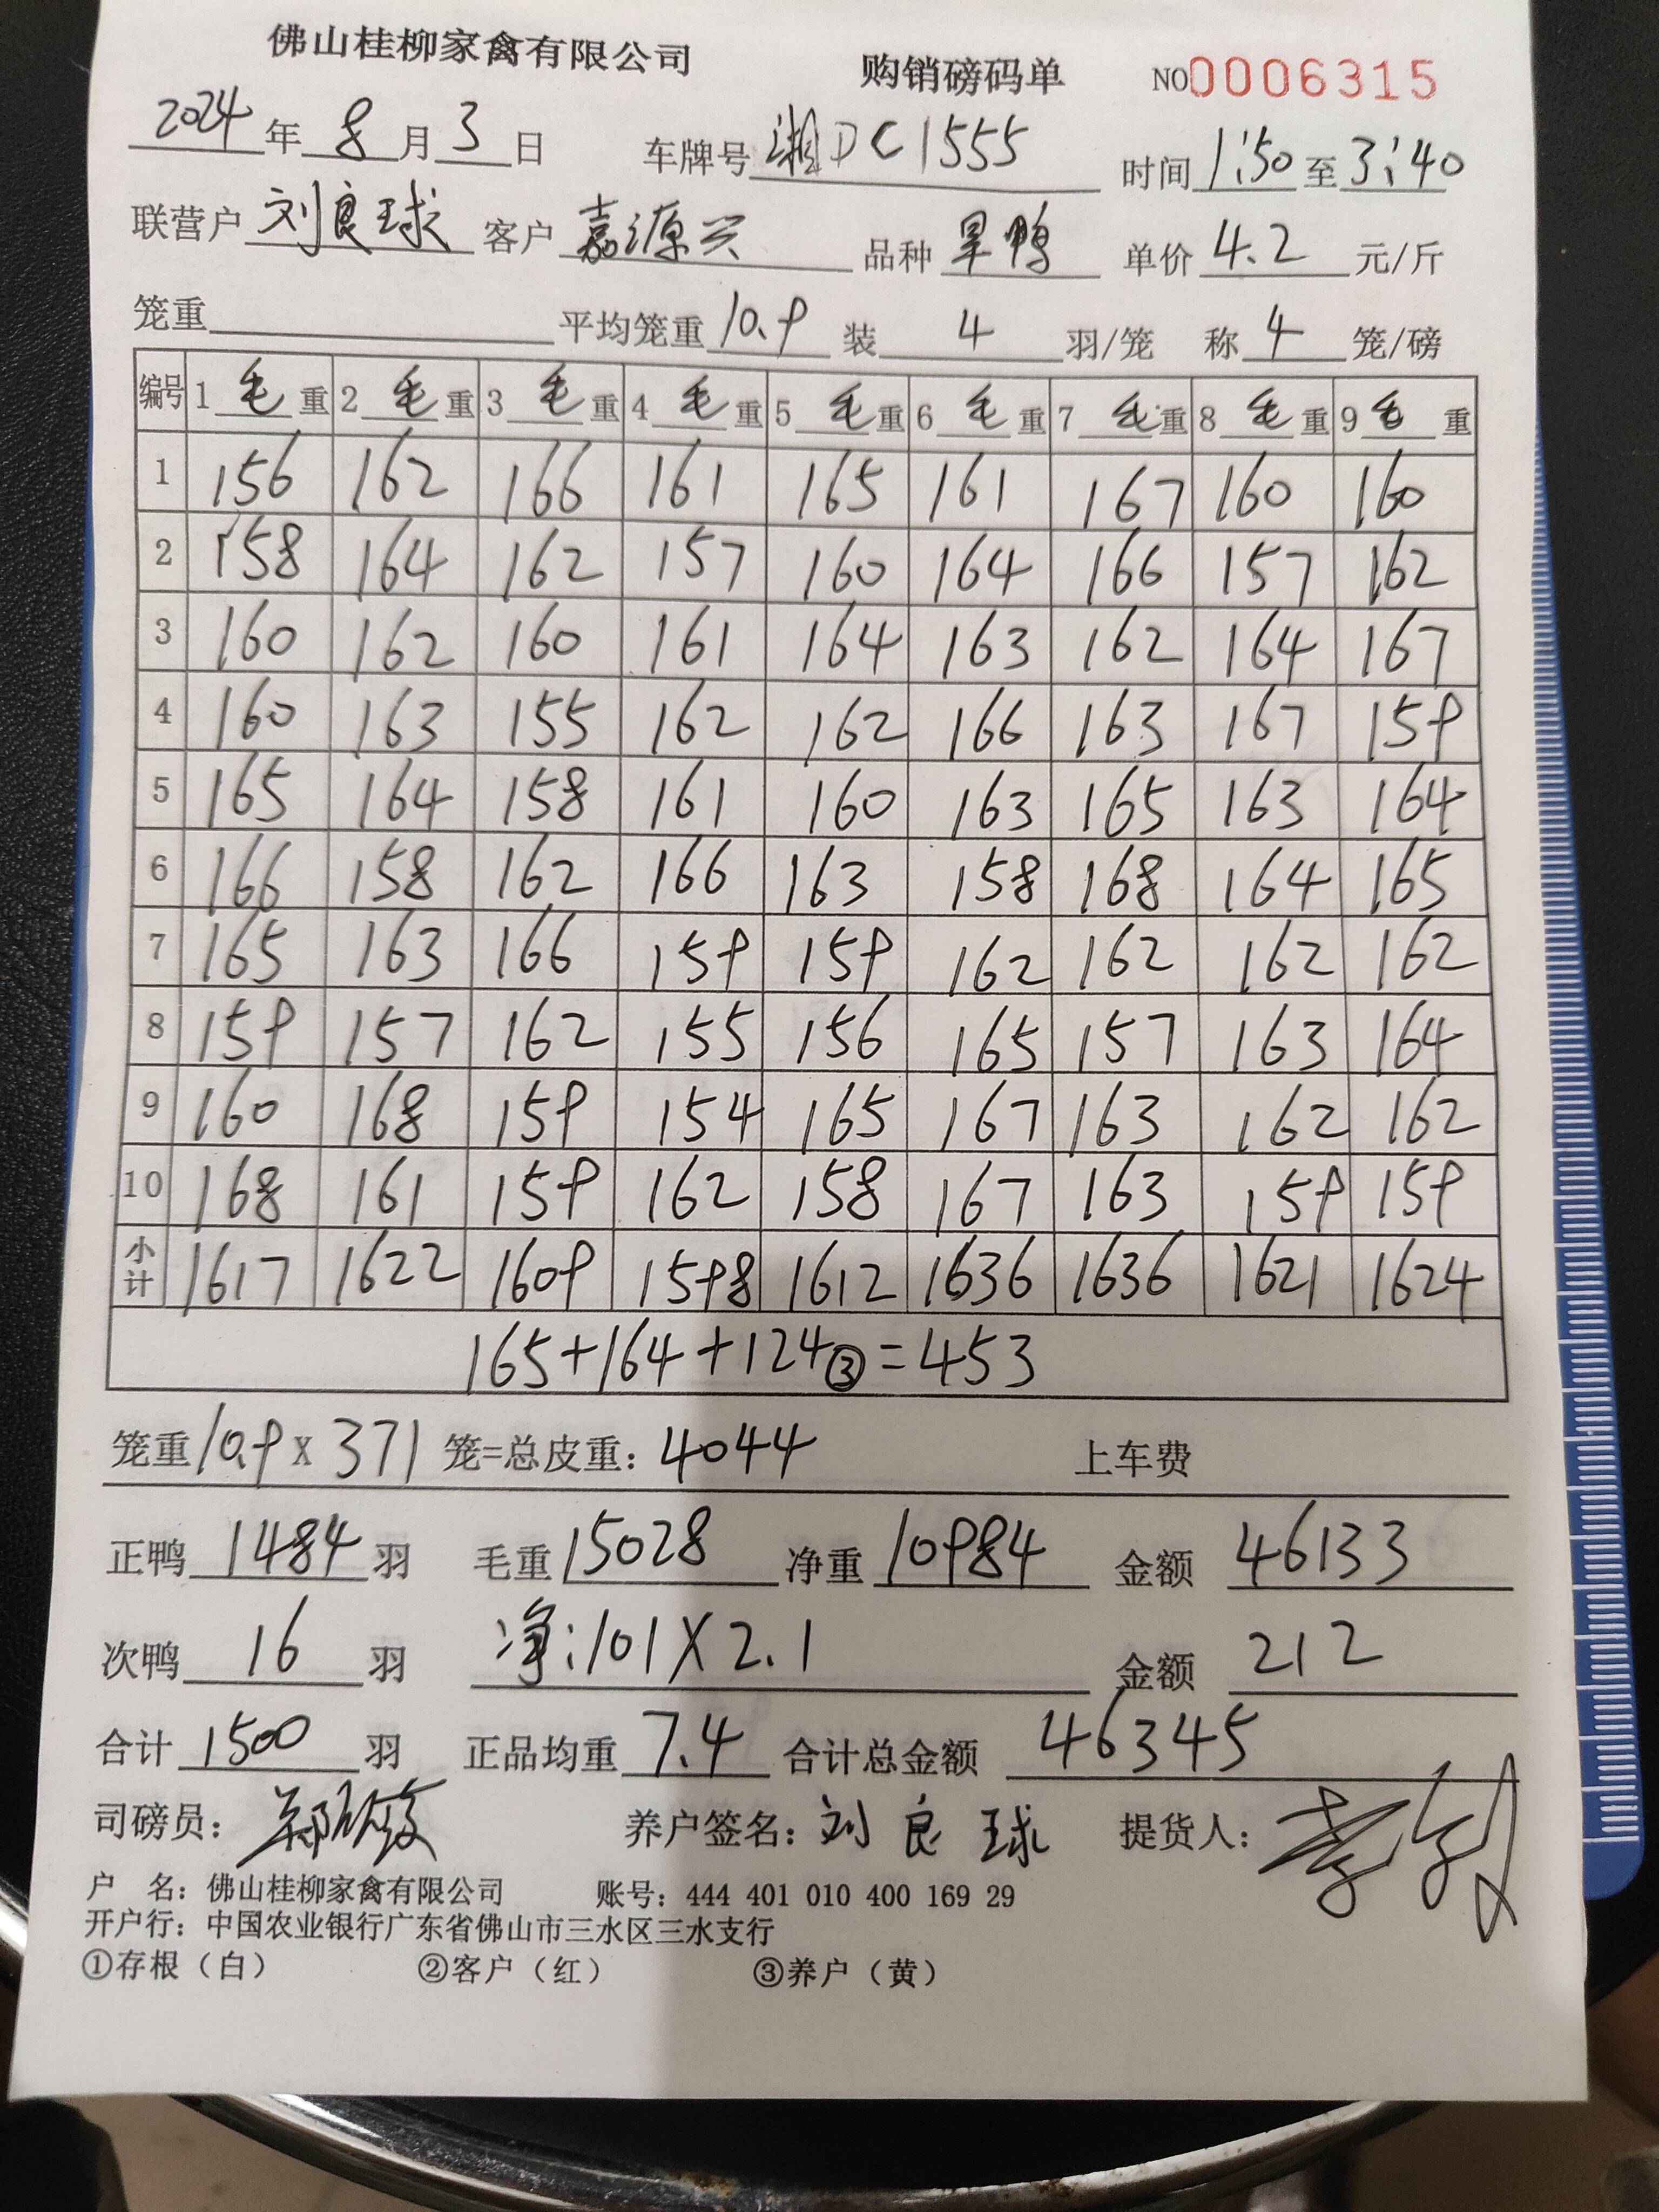 佛山桂柳家禽有限公司 购销磅码单 NO0006315
2024年8月3日 车牌号 湘DC1555 时间1:50至3:40
联营户 刘良球 客户 嘉源兴 品种 旱鸭 单价4.2元/斤
笼重 平均笼重10.9 装4羽/笼 称4笼/磅
编号 1毛重 2毛重 3毛重 4毛重 5毛重 6毛重 7毛重 8毛重 9毛重
1 156 162 166 161 165 161 167 160 160
2 158 164 162 157 160 164 166 157 162
3 160 162 160 161 164 163 162 164 167
4 160 163 155 162 162 166 163 167 159
5 165 164 158 161 160 163 165 163 164
6 166 158 162 166 163 158 168 164 165
7 165 163 166 159 159 162 162 162 162
8 159 157 162 155 156 165 157 163 164
9 160 168 159 154 165 167 163 162 162
10 168 161 159 162 158 167 163 159 159
小计 1617 1622 1609 1598 1612 1636 1636 1621 1624
165+164+124③=453
笼重10.9x371笼=总皮重：4044 上车费
正鸭1484羽 毛重15028 净重10984 金额46133
次鸭16羽 净:101X2.1 金额212
合计1500羽 正品均重7.4 合计总金额46345
司磅员： 养户签名：刘良球 提货人：
户 名：佛山桂柳家禽有限公司 账号：444 401 010 400 169 29
开户行：中国农业银行广东省佛山市三水区三水支行
①存根（白） ②客户（红） ③养户（黄）